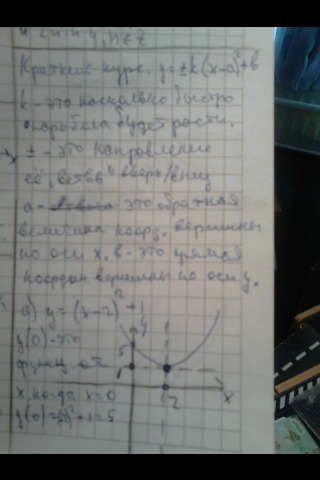 Краткий курс. y=±k(x-a)²+b
k - это насколько быстро
парабола будет рости.
± - это направление
её "ветвь" вверх/вниз
a - это обратная
величина коорд. вершины
по оси x. b - это прямая
коордан вершины по оси y.
а) y=(x-2)²+1
y(0)-это
функц от
x, когда x=0
y(0)=2²+1=5
y
5
1
2
x